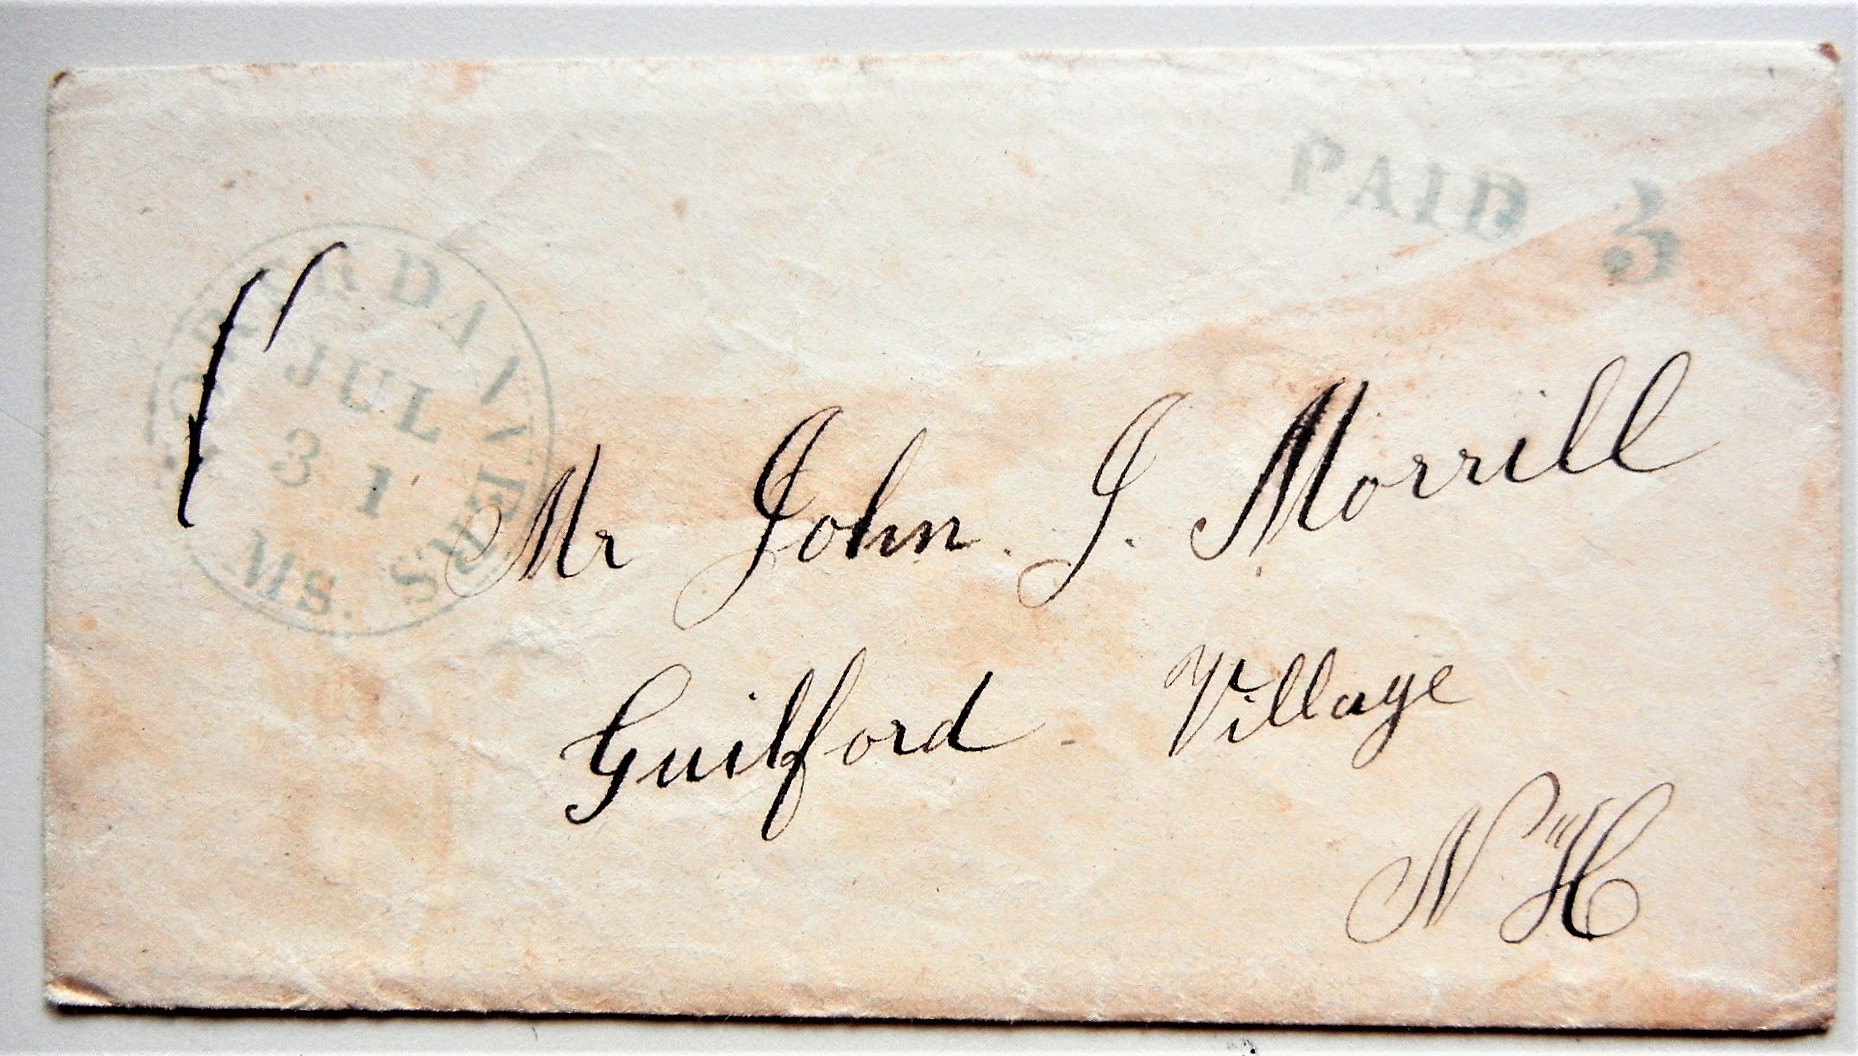 PAID 3
NORTH DANVERS Ms.
JUL
31
Mr John. J. Morrill
Guilford - Village
N H